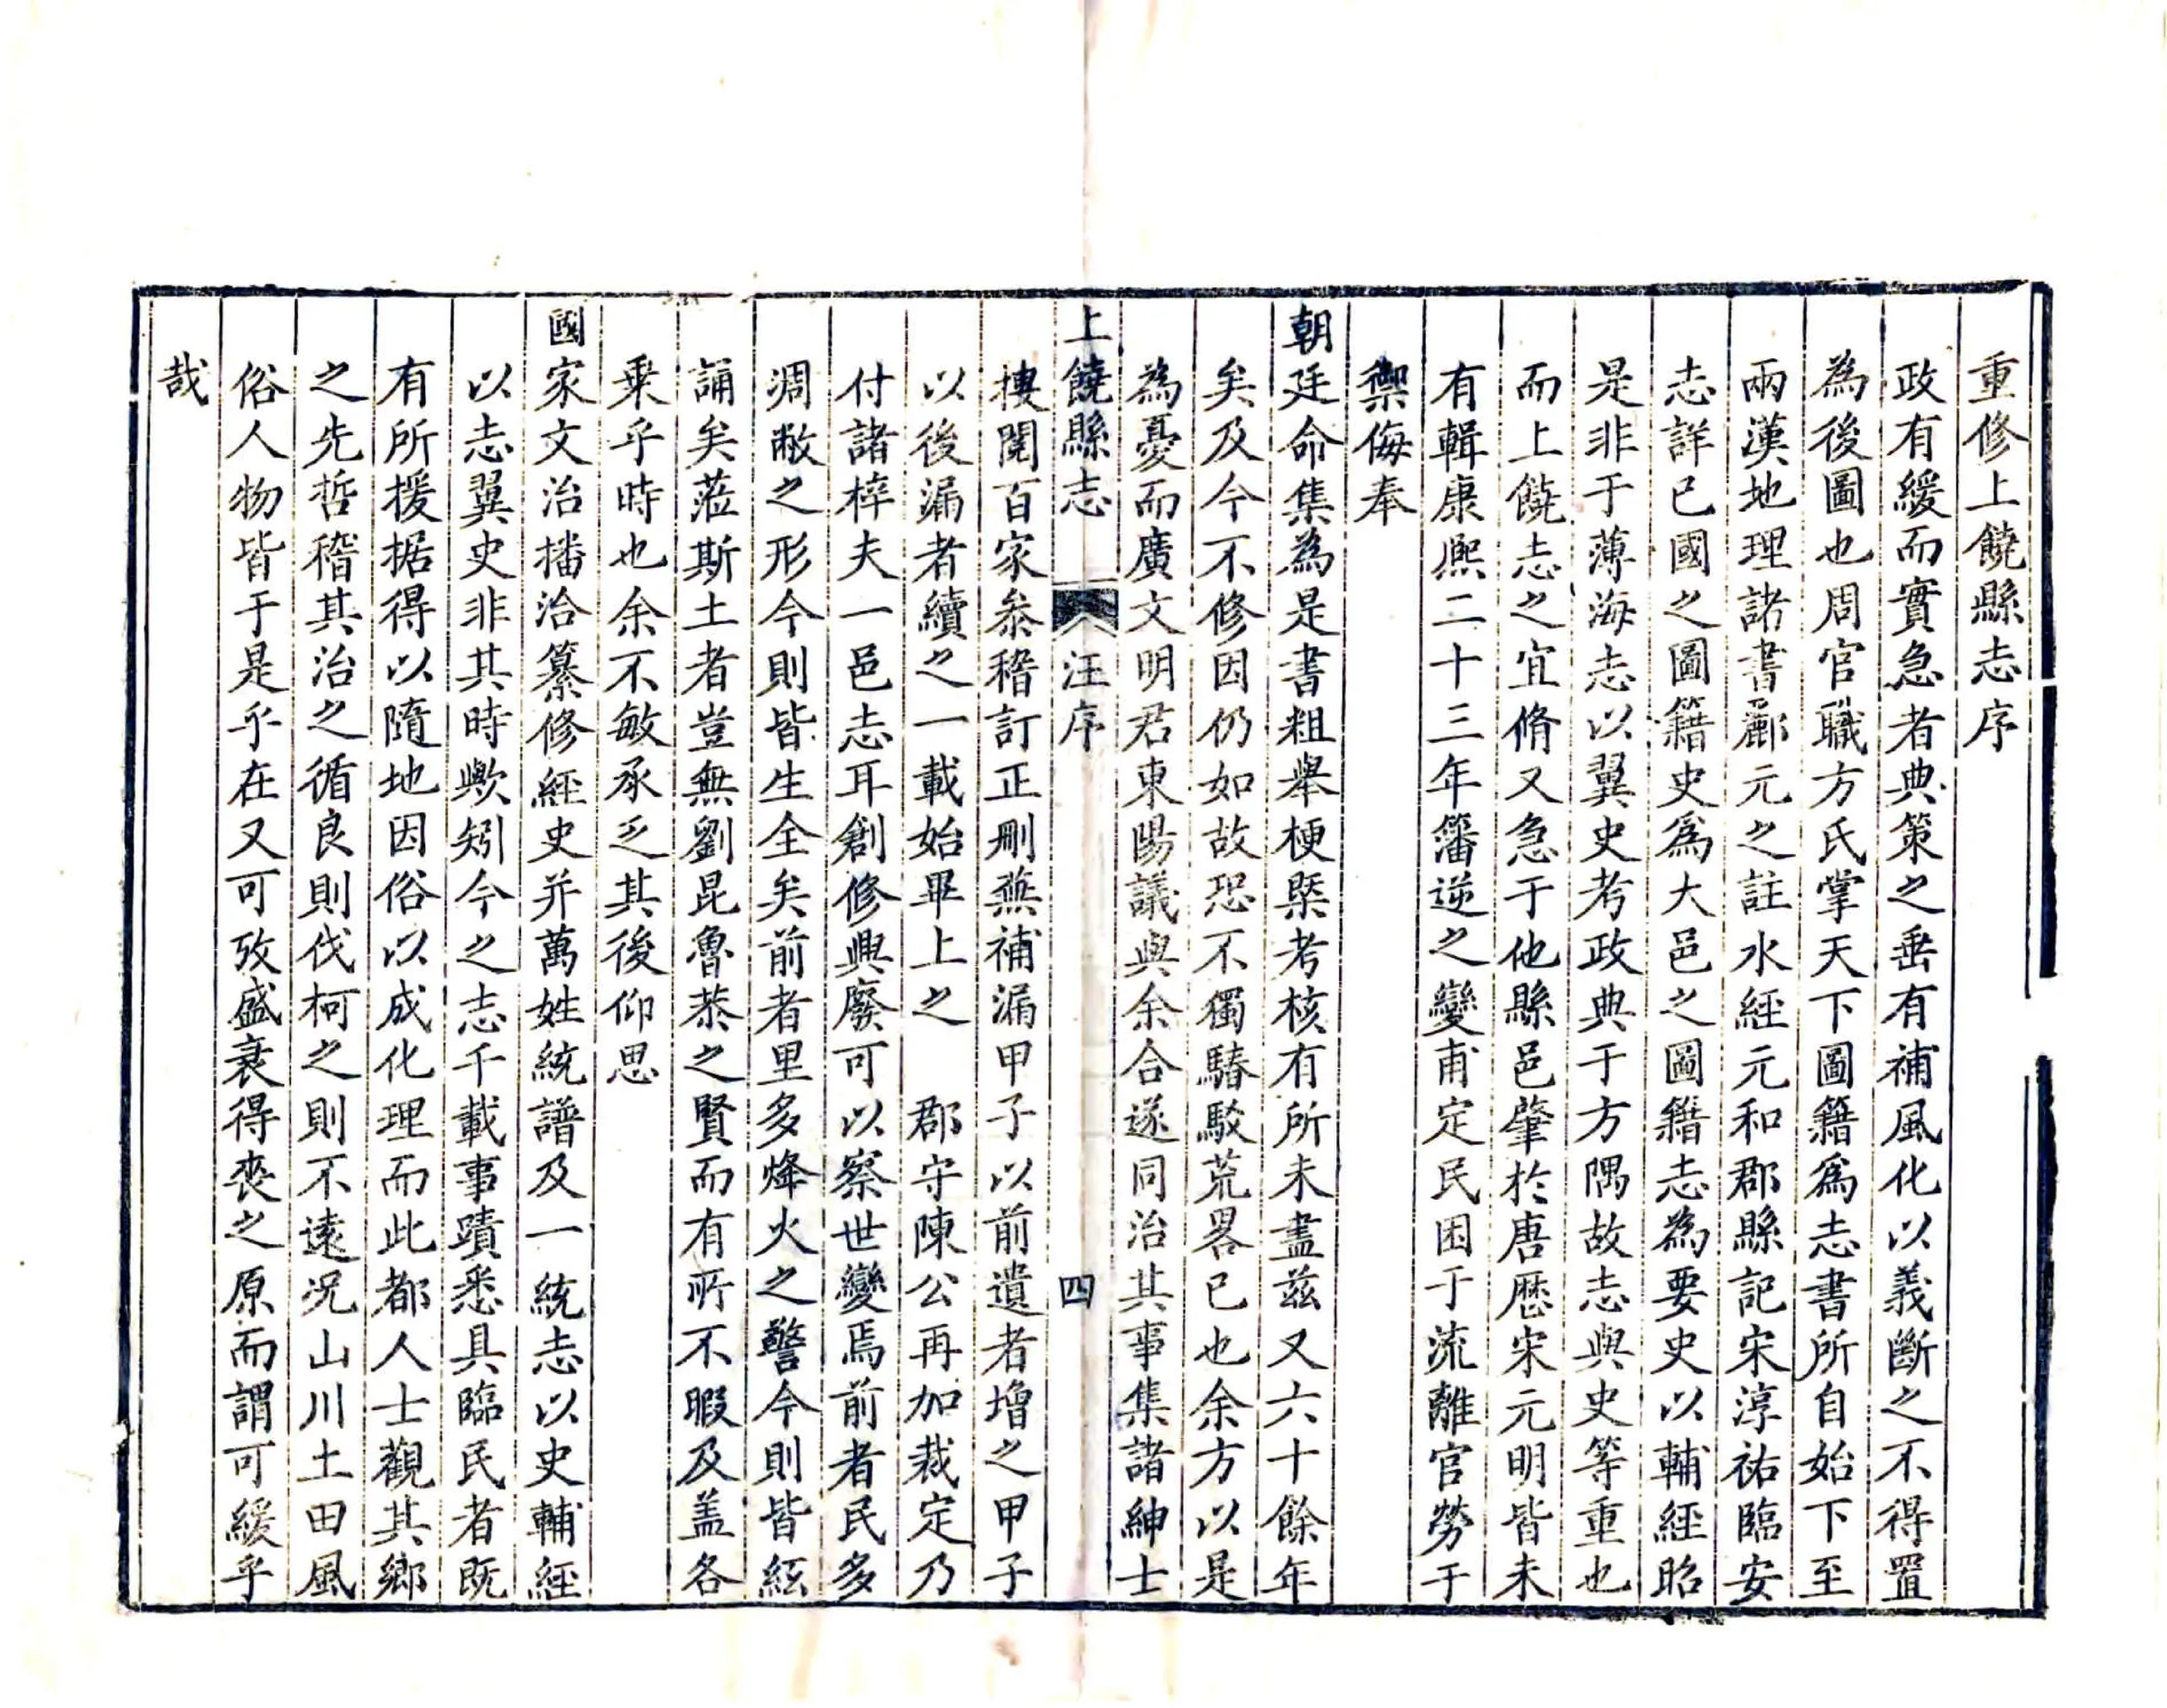 重修上饒縣志序
政有緩而實急者典策之垂有補風化以義斷之不得置
為後圖也周官職方氏掌天下圖籍爲志書所自始下至
兩漢地理諸書酈元之註水經元和郡縣記宋淳祐臨安
志詳已國之圖籍史爲大邑之圖籍志為要史以輔經昭
是非于薄海志以翼史考政典于方隅故志與史等重也
而上饒志之宜脩又急于他縣邑肇於唐歷宋元明皆未
有輯康熙二十三年籓逆之變甫定民困于流離官勞于
禦侮奉
朝廷命集為是書粗舉梗槩考核有所未盡茲又六十餘年
矣及今不修因仍如故恐不獨騞駁荒畧已也余方以是
為憂而廣文明君東陽議與余合遂同治其事集諸紳士
上饒縣志 汪序 四
摟閱百家叅稽訂正刪蕪補漏甲子以前遺者增之甲子
以後漏者續之一載始畢上之 郡守陳公再加裁定乃
付諸梓夫一邑志耳創修興廢可以察世變焉前者民多
凋敝之形今則皆生全矣前者里多烽火之警今則皆絃
誦矣蒞斯土者豈無劉昆魯恭之賢而有所不暇及盖各
乗乎時也余不敏承乏其後仰思
國家文治播洽纂修經史并萬姓統譜及一統志以史輔經
以志翼史非其時歟矧今之志千載事蹟悉具臨民者既
有所援据得以隨地因俗以成化理而此都人士觀其鄉
之先哲稽其治之循良則伐柯之則不遠况山川土田風
俗人物皆于是乎在又可攷盛衰得喪之原而謂可緩乎
哉